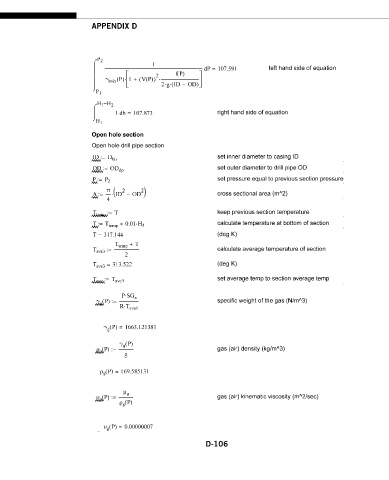 APPENDIX D
∫P₁^P₂ 1 / (γmix(P)·[1 + (V(P))²· f(P) / (2·g·(ID − OD))]) dP = 107.591 left hand side of equation
∫H₁^(H₁+H₂) 1 dh = 107.873 right hand side of equation
Open hole section
Open hole drill pipe section
set inner diameter to casing ID
OD := ODdp set outer diameter to drill pipe OD
set pressure equal to previous section pressure
A := π/4·(ID² − OD²) cross sectional area (m^2)
:= T keep previous section temperature
calculate temperature at bottom of section
T = 317.144 (deg K)
calculate average temperature of section
= 313.522 (deg K)
set average temp to section average temp
specific weight of the gas (N/m^3)
γg(P) = 1663.121381
ρg(P) := γg(P) / g gas (air) density (kg/m^3)
ρg(P) = 169.585131
gas (air) kinematic viscosity (m^2/sec)
νg(P) = 0.00000007
D-106